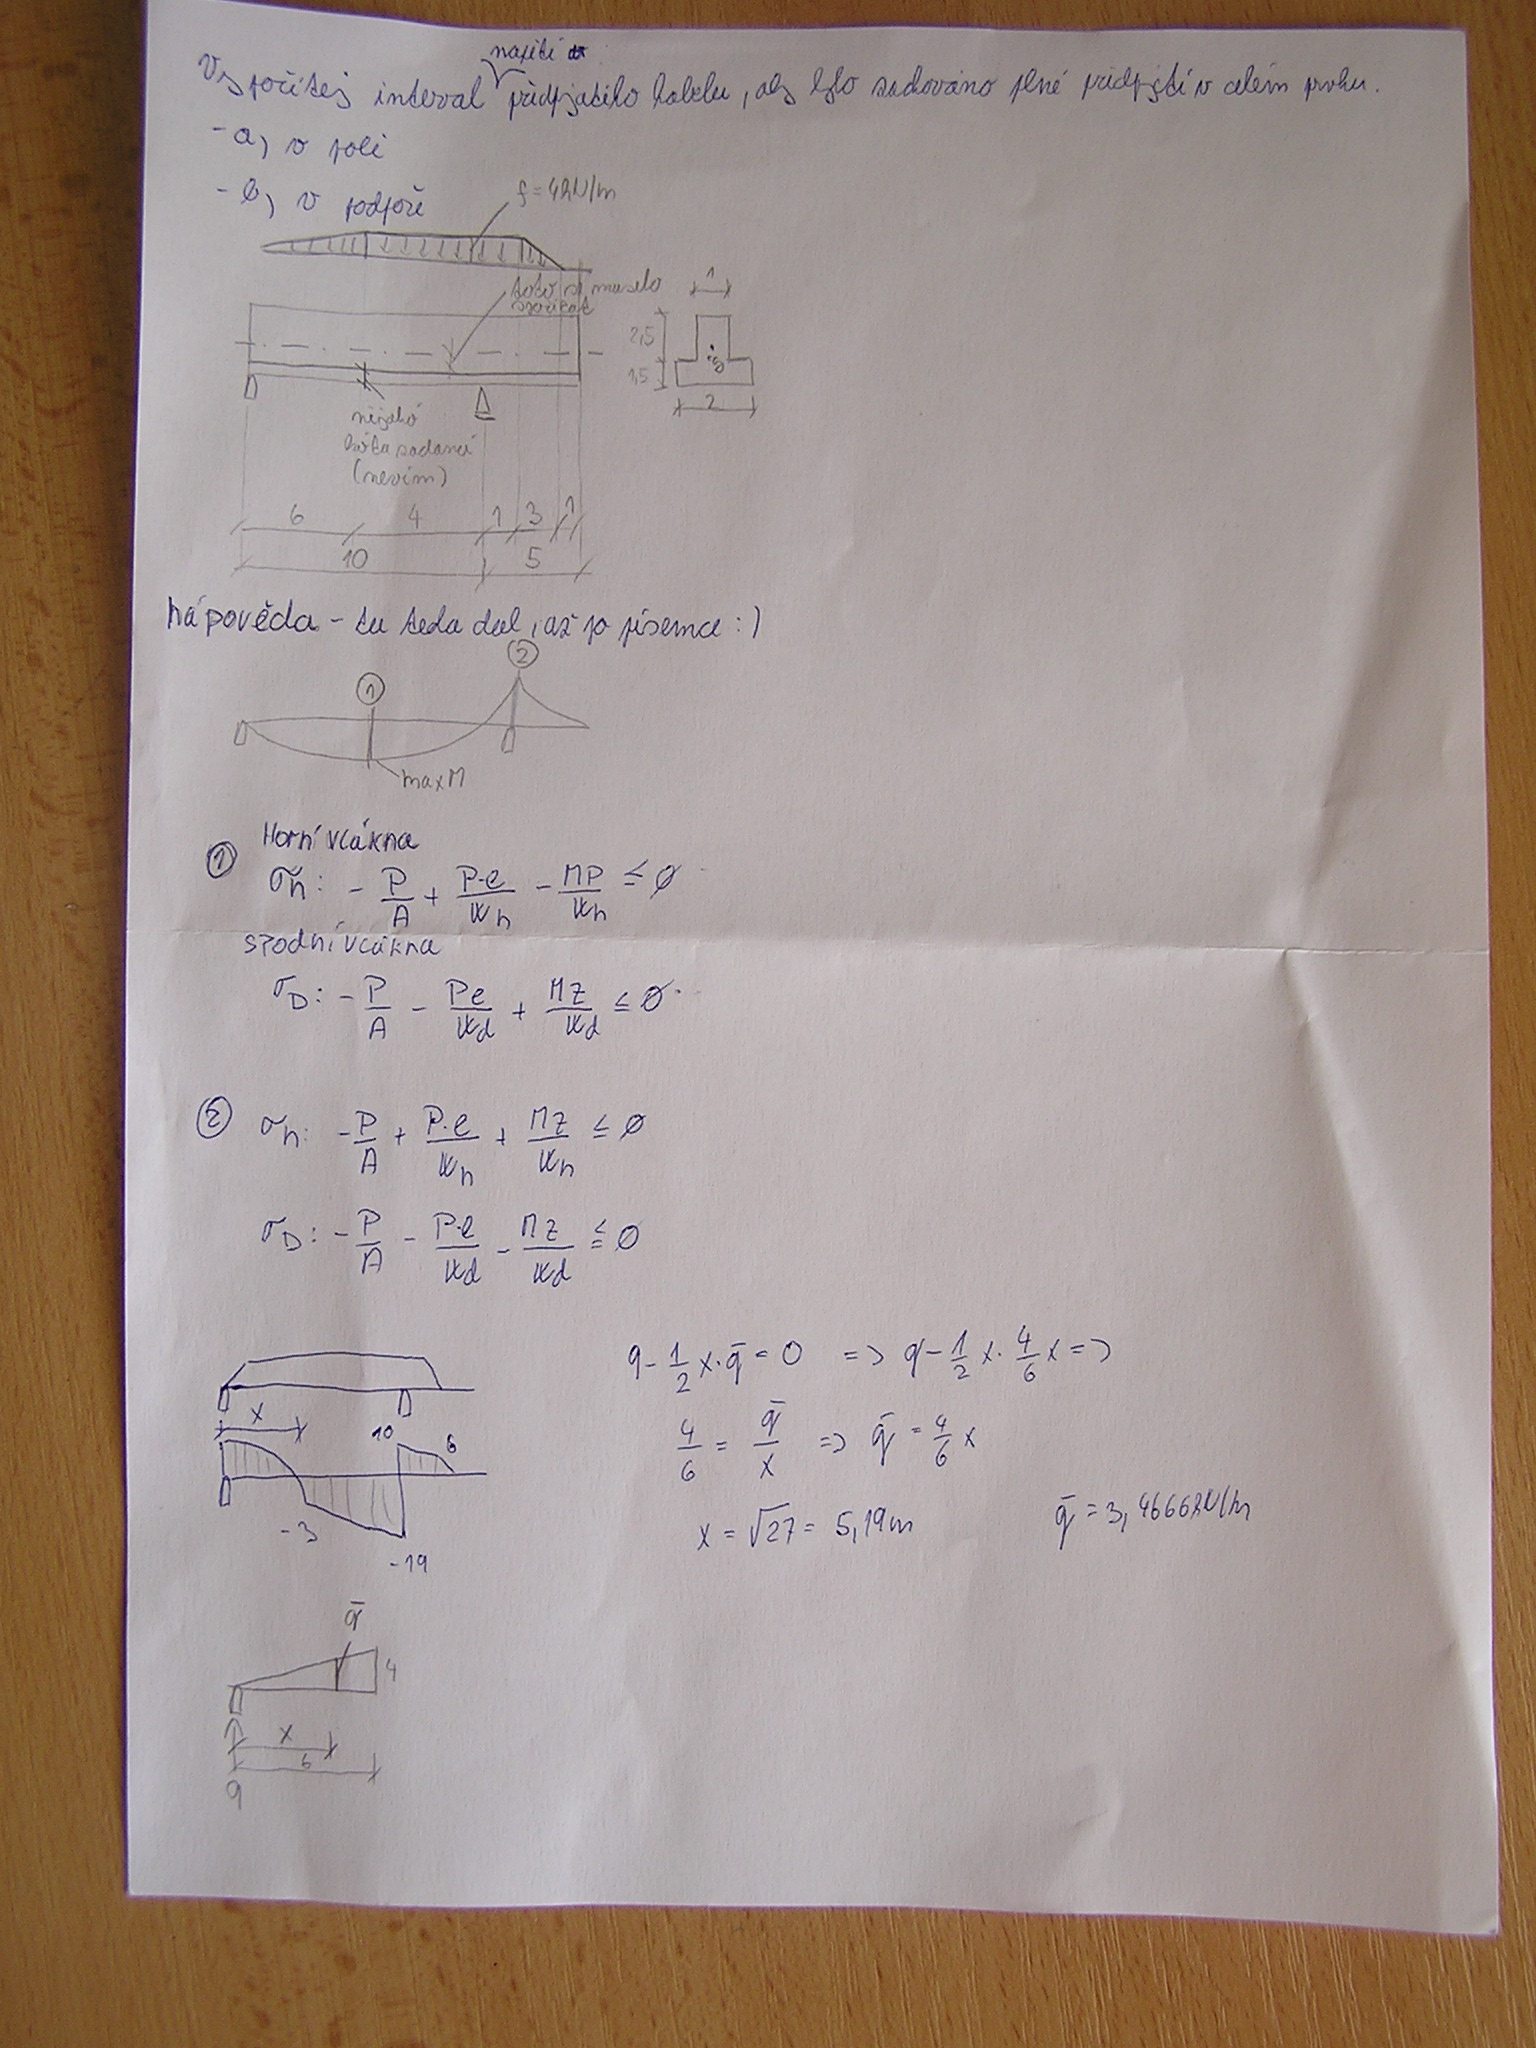 napětí
Vypočítej interval předpjatého kabelu, aby bylo zachováno plné předpjetí v celém prvku.
- a, v poli
- b, v podpoře
f = 4kN/m
toto se muselo
spočítat
1
2,5
1,5
2
nějaká
kóta zadaná
(nevím)
6 4 1 3 1
10 5
Nápověda - tu teda dal, až po písemce :)
① ②
max M
① Horní vlákna
σh: - P/A + P·e/Wh - MP/Wh ≤ 0
spodní vlákna
σD: - P/A - Pe/Wd + MZ/Wd ≤ 0
② σh: - P/A + P·e/Wh + MZ/Wh ≤ 0
σD: - P/A - P·e/Wd - MZ/Wd ≤ 0
9 - 1/2 x · q̄ = 0 => 9 - 1/2 x · 4/6 x =>
x 10 6
4/6 = q̄/x => q̄ = 4/6 x
-3
-19
x = √27 = 5,19m q̄ = 3,466kN/m
q̄
4
x
6
9